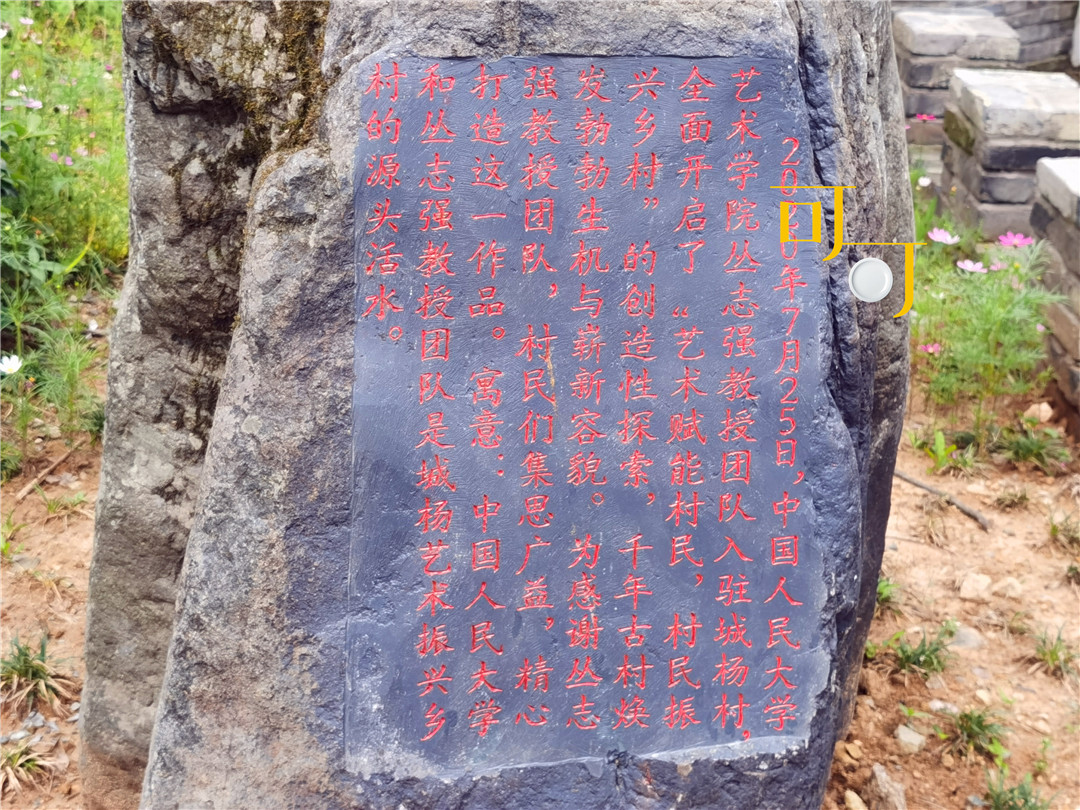 2020年7月25日，中国人民大学
艺术学院丛志强教授团队入驻城杨村，
全面开启了“艺术赋能村民，村民振
兴乡村”的创造性探索，千年古村焕
发勃勃生机与崭新容貌。为感谢丛志
强教授团队，村民们集思广益，精心
打造这一作品。寓意：中国人民大学
和丛志强教授团队是城杨艺术振兴乡
村的源头活水。